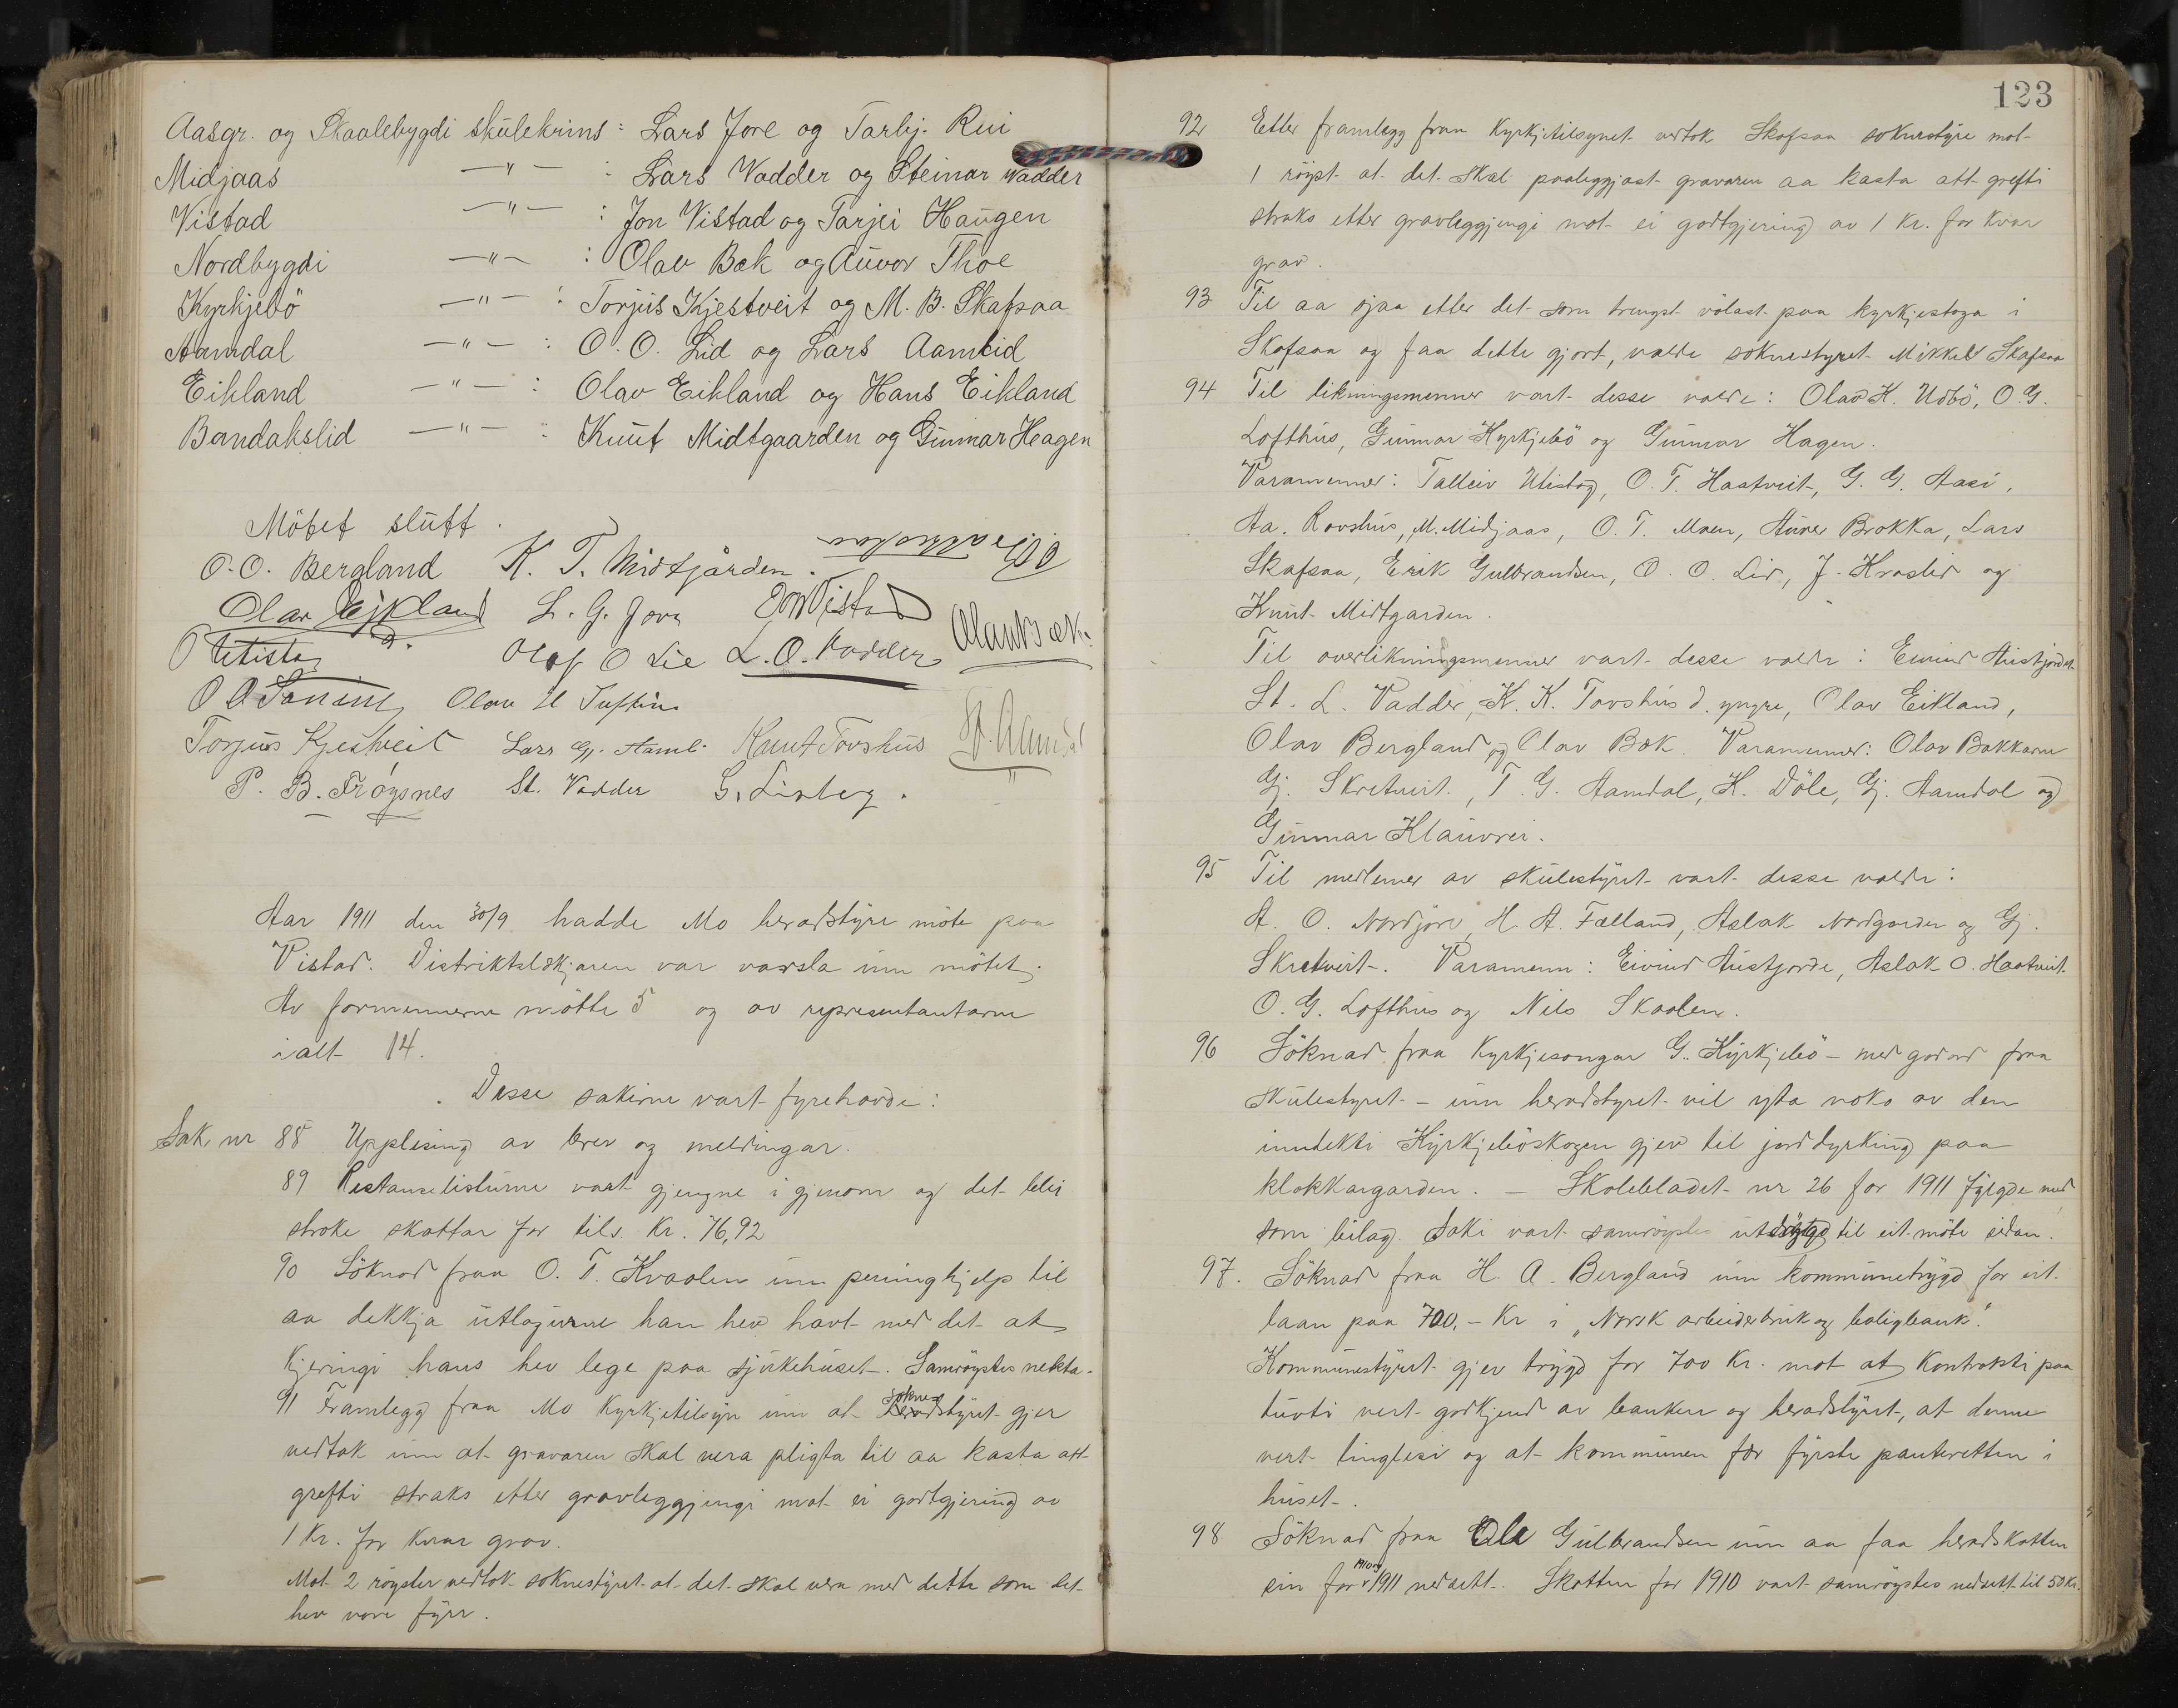 Aasgr. og Skaalebygdi skulekrins : Lars Jore og Tarbj. Rui
Midjaas —"— : Lars Vadder og Steinar Vadder
Vistad —"— : Jon Vistad og Tarjei Haugen
Nordbygdi —"— : Olav Bæk og Auvor Thoe
Kyrkjebö —"— : Torjus Kjestveit og M. B. Skafsaa
Aamdal —"— : O. O. Lid og Lars Aamlid
Eikland —"— : Olav Eikland og Hans Eikland
Bandakslid —"— : Knut Midtgaarden og Gunnar Heagen
Möbet slutt.
O. O. Bergland K. T. Midtjården.
Olav Eikland L. G. Jore Vistad
Olav Bæk.
Olaf O Lie L. O. Vadder
Olav H Tuftin
Torjus Kjestveit Lars Gj. Aaml. Knut Tovshus Aamdal
P. B. Frøysnes St. Vadder
Aar 1911 den 30/9 hadde Mo heradstyre möte paa
Vistad. Distriktslækjaren var varsla um mötet.
Av formennerne mötte 5 og av representantarne
ialt 14.
Desse sakirne vart fyrehavde:
Sak nr 88 Upplesing av brev og meldingar.
89 Restanselisturne vart gjengne i gjenom og det blei
stroke skattar for tils. Kr. 76,92
90 Söknad fraa O. T. Kvaalen um peninghjelp til
aa dekkja utlogurne han hev havt med det at
kjeringi hans hev lege paa sjukehuset. Samröystes nekta.
91 Framlegg fraa Mo Kyrkjetilsyn um at soknestyret gjer
vedtak um at gravaren skal vera pligta til aa kasta att
grefti straks etter gravleggjingi mot ei godtgjering av
1 Kr. for kvar grav.
Mot 2 röyster vedtok soknestyret at det skal vera med dette som det
hev vore fyrr.
123
92 Etter framlegg fraa Kyrkjetilsynet vedtok Skafsaa soknestyre mot
1 röyst at det skal paaleggjast gravaren aa kasta att grefti
straks etter gravleggjingi mot ei godtgjering av 1 Kr. for kvar
grav.
93 Til aa sjaa etter det som trengst völast paa kyrkjestoga i
Skafsaa og faa dette gjort, valde soknestyret Mikkel Skafsaa
94 Til likningsmenner vart desse valde: Olav K. Udbö, O. G.
Lofthus, Gunnar Kyrkjebö og Gunnar Hagen.
Varamenner: Talleiv Utistog, O. T. Haatveit, G. G. Aasi,
Aa. Rovshus, M. Midjaas, O. T. Moen, Auver Brokka, Lars
Skafsaa, Erik Gulbrandsen, O. O. Lid, J. Kraslid og
Knut Midtgarden.
Til overlikningsmenner vart desse valde: Eivind Austjordet
St. L. Vadder, K. K. Tovshus d. yngre, Olav Eikland,
Olav Bergland og Olav Bæk. Varamenner: Olav Bakkane
Gj. Skretveit, T. G. Aamdal, K. Döle, Gj. Aamdal og
Gunnar Klauvrei.
95 Til medlemer av skulestyret vart desse valde:
A. O. Nordjore, H. A. Fælland, Aslak Nordgarden og Gj.
Skretveit. Varamenn: Eivind Austjorde, Aslak O. Haatveit
O. G. Lofthus og Nils Skaalen.
96 Söknad fraa Kyrkjesongar G. Kyrkjebö – med godord fraa
skulestyret – um heradstyret vil yta noko av den
inntekti Kyrkjeböskogen gjev til jorddyrking paa
klokkargarden. — Skolebladet nr 26 for 1911 fylgde med
som bilag. Saki vart samröystes utsdygd til eit möte sidan.
97. Söknad fraa H. A. Bergland um kommunetrygd for eit
laan paa 700,- Kr i „Norsk arbeiderbruk og boligbank".
Kommunestyret gjev trygd for 700 Kr. mot at kontrakti paa
tufti vert godkjend av banken og heradstyret, at denne
vert tinglesi og at kommunen fær fyrste panteretten i
huset.
98 Söknad fraa Ole Gulbrandsen um aa faa heradskatten
sin for 1910 og 1911 nedsett. Skatten for 1910 vart samröystes nedsett til 50 Kr.